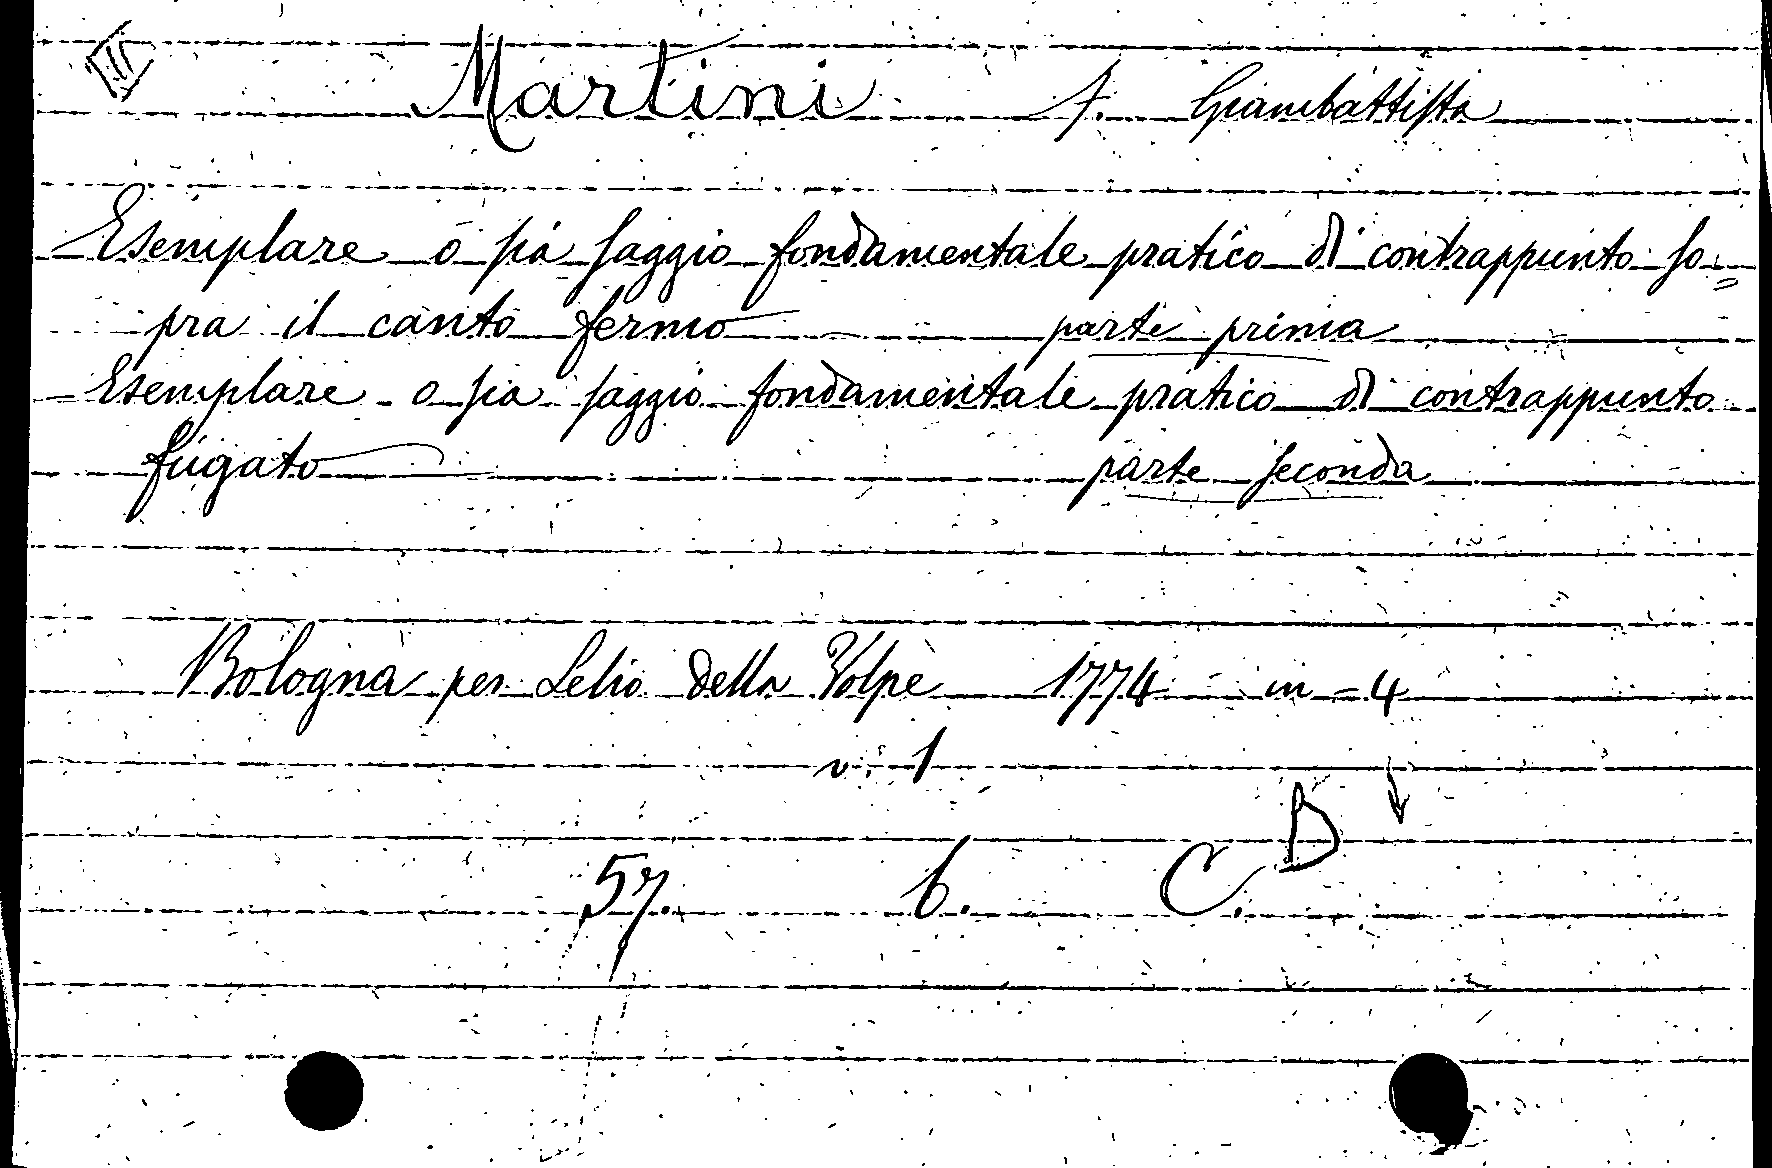 Martini f. Giambattista
Esemplare o sia saggio fondamentale pratico di contrappunto so=
pra il canto fermo parte prima
Esemplare o sia saggio fondamentale pratico di contrappunto
fugato parte seconda
Bologna per Lelio della Volpe 1774 in = 4
v. 1
D
57. b. C.